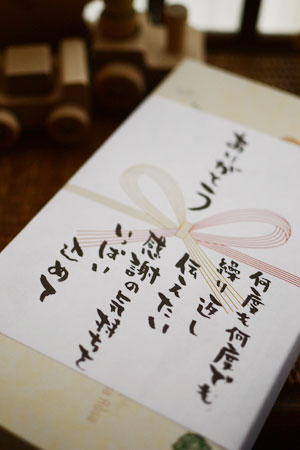 ありがとう
何度も何度でも
繰り返し
伝えたい
感謝の気持ちを
いっぱい
込めて